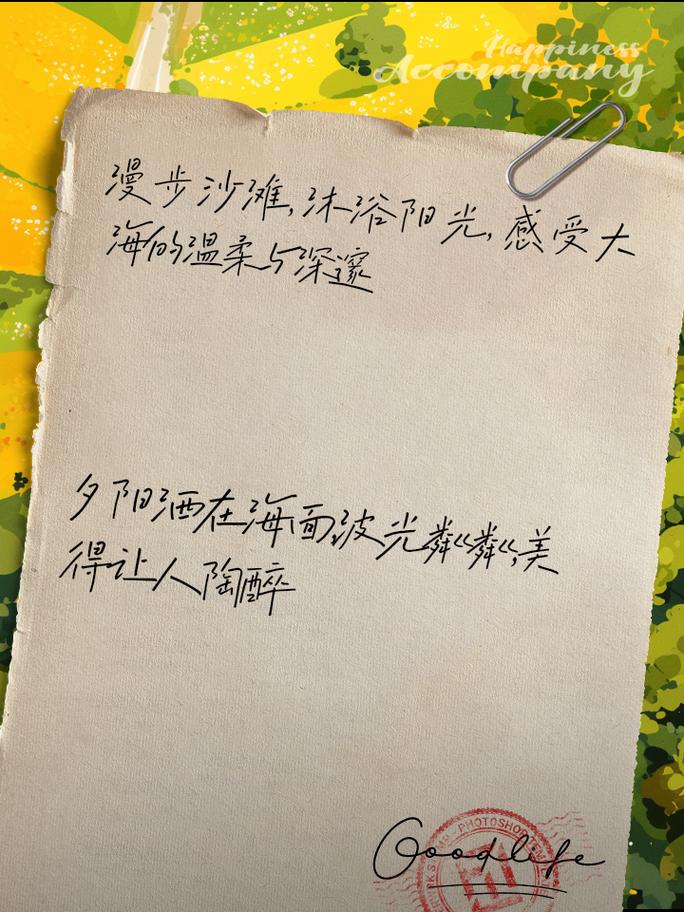 Happiness
Accompany
漫步沙滩,沐浴阳光,感受大
海的温柔与深邃
夕阳洒在海面,波光粼粼,美
得让人陶醉
Goodlife
PHOTOSHOP